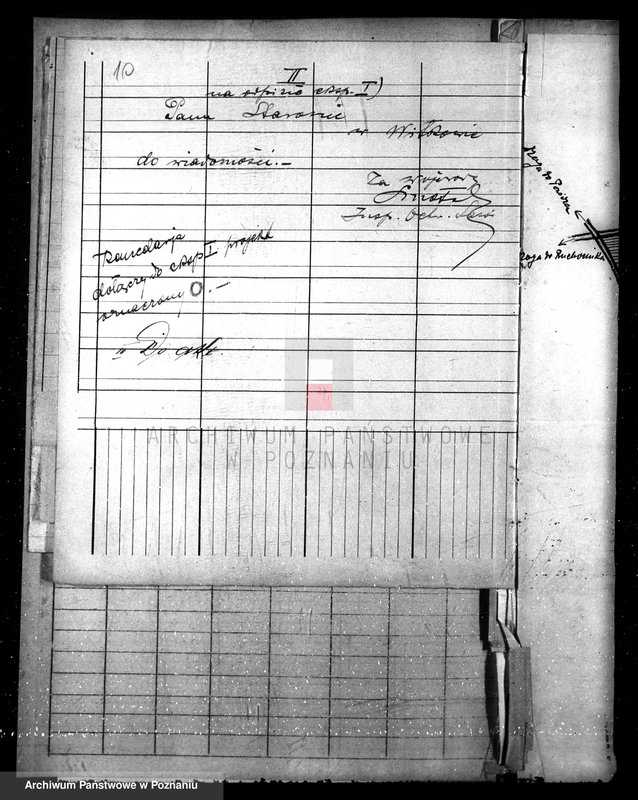 10
II
na odpisie eksp. I)
Panu Staroście
w Witkowie
do wiadomości.—
Za wojewodę
Insp. Ochr. Lasów
Kancelaria
dołączy do eksp I projekt
oznaczony O.—
II Do akt.
Droga do
Droga do Ruchocinka
ARCHIWUM PAŃSTWOWE
W POZNANIU
Archiwum Państwowe w Poznaniu